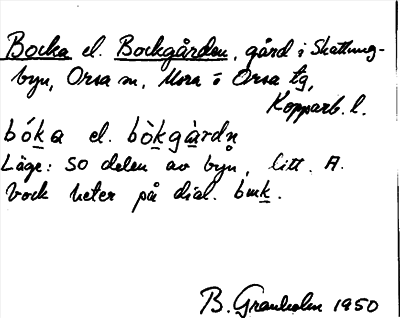 Bocka el. Bockgården, gård i Skattung-
byn, Orsa sn, Mora o Orsa tg,
Kopparb. l.
bók̲a el. bòk̲gàrdn̥
Läge: SO delen av byn, litt. A.
bock heter på dial. buk̲.
B. Granholm 1950